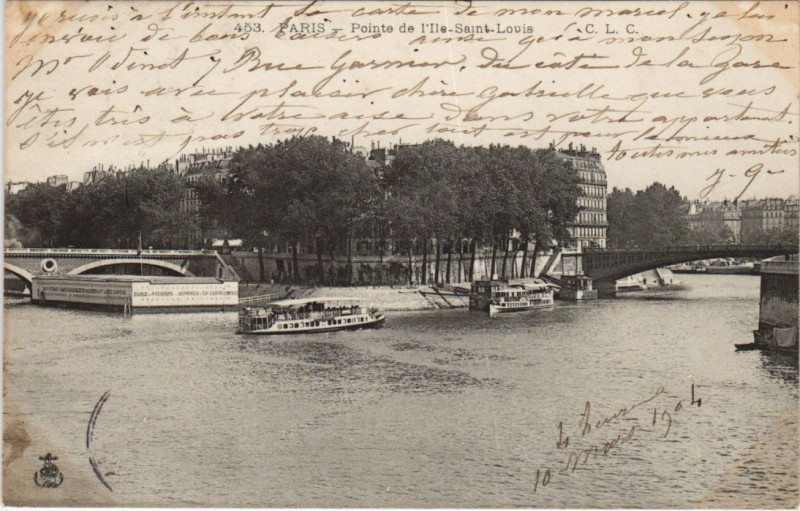 je reçois à l'instant ta carte de mon marcel. je lui
envoie de bons baisers ainsi qu'à mon
453. PARIS - Pointe de l'Ile-Saint-Louis C. L. C.
Mr Odinot 7 Rue Garnier du côté de la gare
je vais avec plaisir chère gabrielle que vous
êtes très à votre aise dans votre appartement.
S'il n'est pas trop cher tout est pour le mieux
toutes mes amitiés
J. G.
4 heures
10 Mars 1904